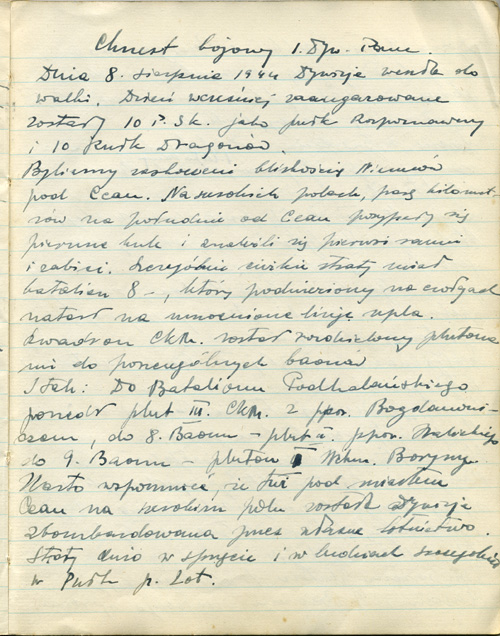 Chrzest bojowy 1. Dyw. Panc.
Dnia 8. sierpnia 1944 Dywizja weszła do
walki. Dzień wcześniej zaangażowane
zostały 10 P.S.k. jako pułk Rozpoznawczy
i 10 Pułk Dragonów.
Byliśmy zaskoczeni bliskością Niemców
pod Caen. Na szerokich polach, parę kilomet-
rów na południe od Caen posypały się
pierwsze kule i znaleźli się pierwsi ranni
i zabici. Szczególnie ciężkie straty miał
batalion 8-, który podwieziony na czołgach
natarł na umocnione linje npla.
Szwadron CKM. został rozdzielony plutona
mi do poszczególnych baonów
I tak: Do Bataljonu Podhalańskiego
poszedł plut III. CKM. z ppor. Bogdanowi-
czem, do 8. Baonu - plut II. ppor.
do 9. Baonu - pluton I Wchm. Boryny.
Warto wspomnieć, że tuż pod miastem
Caen na szerokim polu została Dywizja
zbombardowana przez własne lotnictwo.
Straty dużo w sprzęcie i w ludziach szczególnie
w Pułk p. Lot.